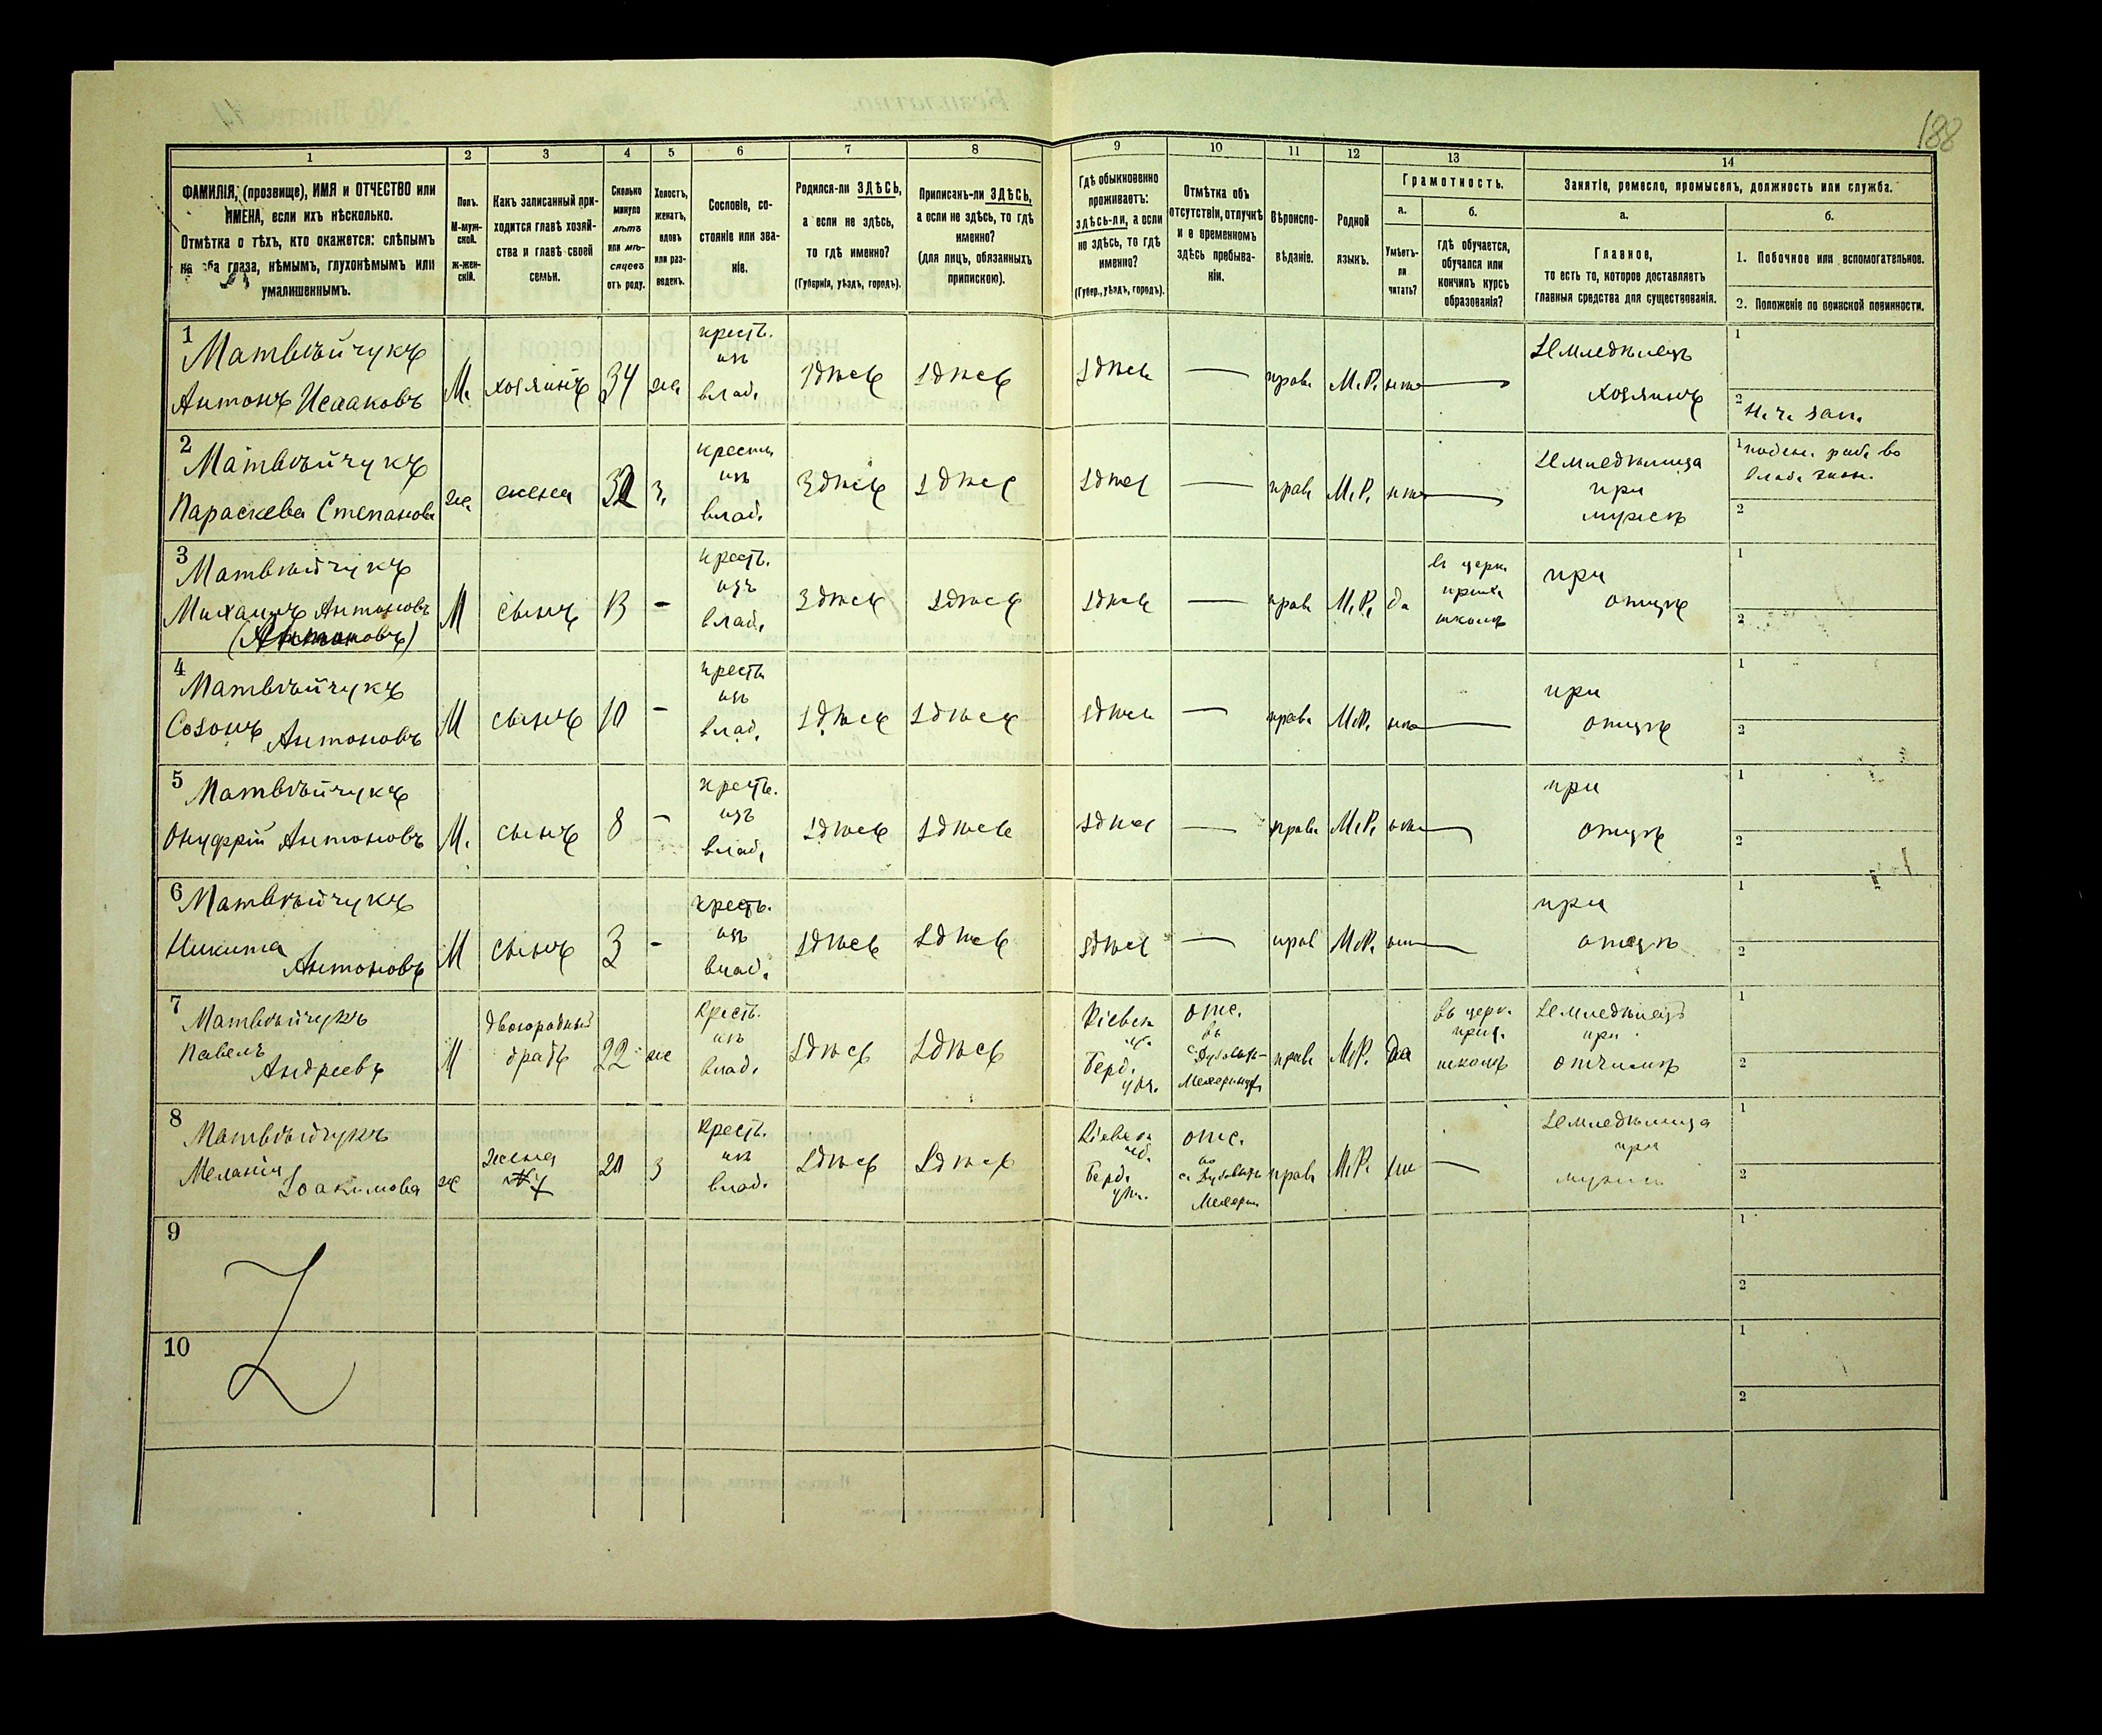 188
1 2 3 4 5 6 7 8 9 10 11 12 13 14
ФАМИЛІЯ, (прозвище), ИМЯ и ОТЧЕСТВО или
ИМЕНА, если ихъ нѣсколько.
Отмѣтка о тѣхъ, кто окажется: слѣпымъ
на оба глаза, нѣмымъ, глухонѣмымъ или
умалишеннымъ.
Полъ.
М-муж-
ской.
Ж-жен-
скій.
Какъ записанный при-
ходится главѣ хозяй-
ства и главѣ своей
семьи.
Сколько
минуло
лѣтъ
или мѣ-
сяцевъ
отъ роду.
Холостъ,
женатъ,
вдовъ
или раз-
веденъ.
Сословіе, со-
стояніе или зва-
ніе.
Родился-ли ЗДѢСЬ,
а если не здѣсь,
то гдѣ именно?
(Губернія, уѣздъ, городъ).
Приписанъ-ли ЗДѢСЬ,
а если не здѣсь, то гдѣ
именно?
(для лицъ, обязанныхъ
припискою).
Гдѣ обыкновенно
проживаетъ:
здѣсь-ли, а если
не здѣсь, то гдѣ
именно?
(Губер., уѣздъ, городъ).
Отмѣтка объ
отсутствіи, отлучкѣ
и о временномъ
здѣсь пребыва-
ніи.
Вѣроиспо-
вѣданіе.
Родной
языкъ.
Грамотность.
а.
Умѣетъ-
ли
читать?
б.
гдѣ обучается,
обучался или
кончилъ курсъ
образованія?
Занятіе, ремесло, промыселъ, должность или служба.
а.
Главное,
то есть то, которое доставляетъ
главныя средства для существованія.
б.
1. Побочное или вспомогательное.
2. Положеніе по воинской повинности.
1
Матвѣйчукъ
Антонъ Исааковъ
М.
хозяинъ
34
же
крест.
изъ
влад.
здѣсь
здѣсь
здѣсь
—
прав.
М.Р.
нѣтъ
—
Земледѣлецъ
хозяинъ
1
2
Н. ч. зап.
2
Матвѣйчукъ
Параскева Степанова
же
жена
32
з.
крест.
изъ
влад.
здѣсь
здѣсь
здѣсь
—
прав
М.Р.
нѣтъ
—
Земледѣлица
при
мужѣ
1
поден. раб. во
влад. экон.
2
3
Матвѣйчукъ
Михаилъ Антоновъ
(Антоновъ)
М
сынъ
13
-
крест.
изъ
влад.
здѣсь
здѣсь
здѣсь
—
прав
М.Р.
да
въ церк.
прих.
школѣ
при
отцѣ
1
2
4
Матвѣйчукъ
Созонъ Антоновъ
М
сынъ
10
-
крест
изъ
влад.
здѣсь
здѣсь
здѣсь
—
прав.
М.Р.
нѣтъ
—
при
отцѣ
1
2
5
Матвѣйчукъ
Онуфрій Антоновъ
М.
сынъ
8
-
крест.
изъ
влад.
здѣсь
здѣсь
здѣсь
—
прав.
М.Р.
нѣтъ
—
при
отцѣ
1
2
6
Матвѣйчукъ
Никита
Антоновъ
М
сынъ
3
-
крест.
изъ
влад.
здѣсь
здѣсь
здѣсь
—
прав
М.Р.
нѣтъ
—
при
отцѣ
1
2
7
Матвѣйчукъ
Павелъ
Андреевъ
М
двоюродный
братъ
22
же
Крест.
изъ
влад.
здѣсь
здѣсь
Кіевск
губ.
Берд.
уѣз.
отс.
въ
прав
М.Р.
да
въ церк.
прих.
школѣ
Земледѣлецъ
при
отчимѣ
1
2
8
Матвѣйчукъ
Меланія
Іоакимова
же
жена
20
з
Крест.
изъ
влад.
здѣсь
здѣсь
Кіевск
губ.
Берд.
уѣз.
отс.
прав
М.Р.
—
Земледѣлица
при
мужѣ
1
2
9
1
2
10
1
2